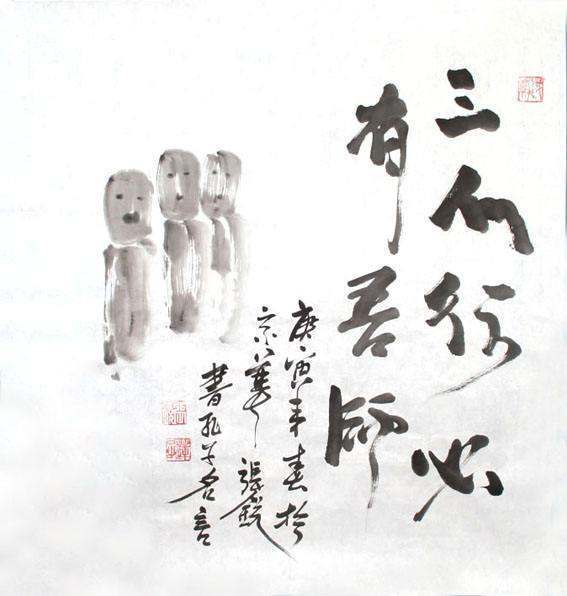 三人行必
有吾師
庚寅年春於
京華張銳
書孔子名言